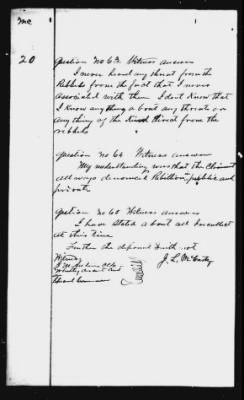 20
Question No 62 Witness answers
I never heard any threat from the
Rebbels from the fact that I never
associated with them I dont know that
I know any thing about any threats or
any thing of the kind threat from the
rebbels
Question No 64 Witness answers
My understanding was that the Claimant
allways denounced Rebellion public and
private
Question No 60 Witness answers
I have stated about all I recollect
at this time
Further the deponent saith not
J. L. McCarley